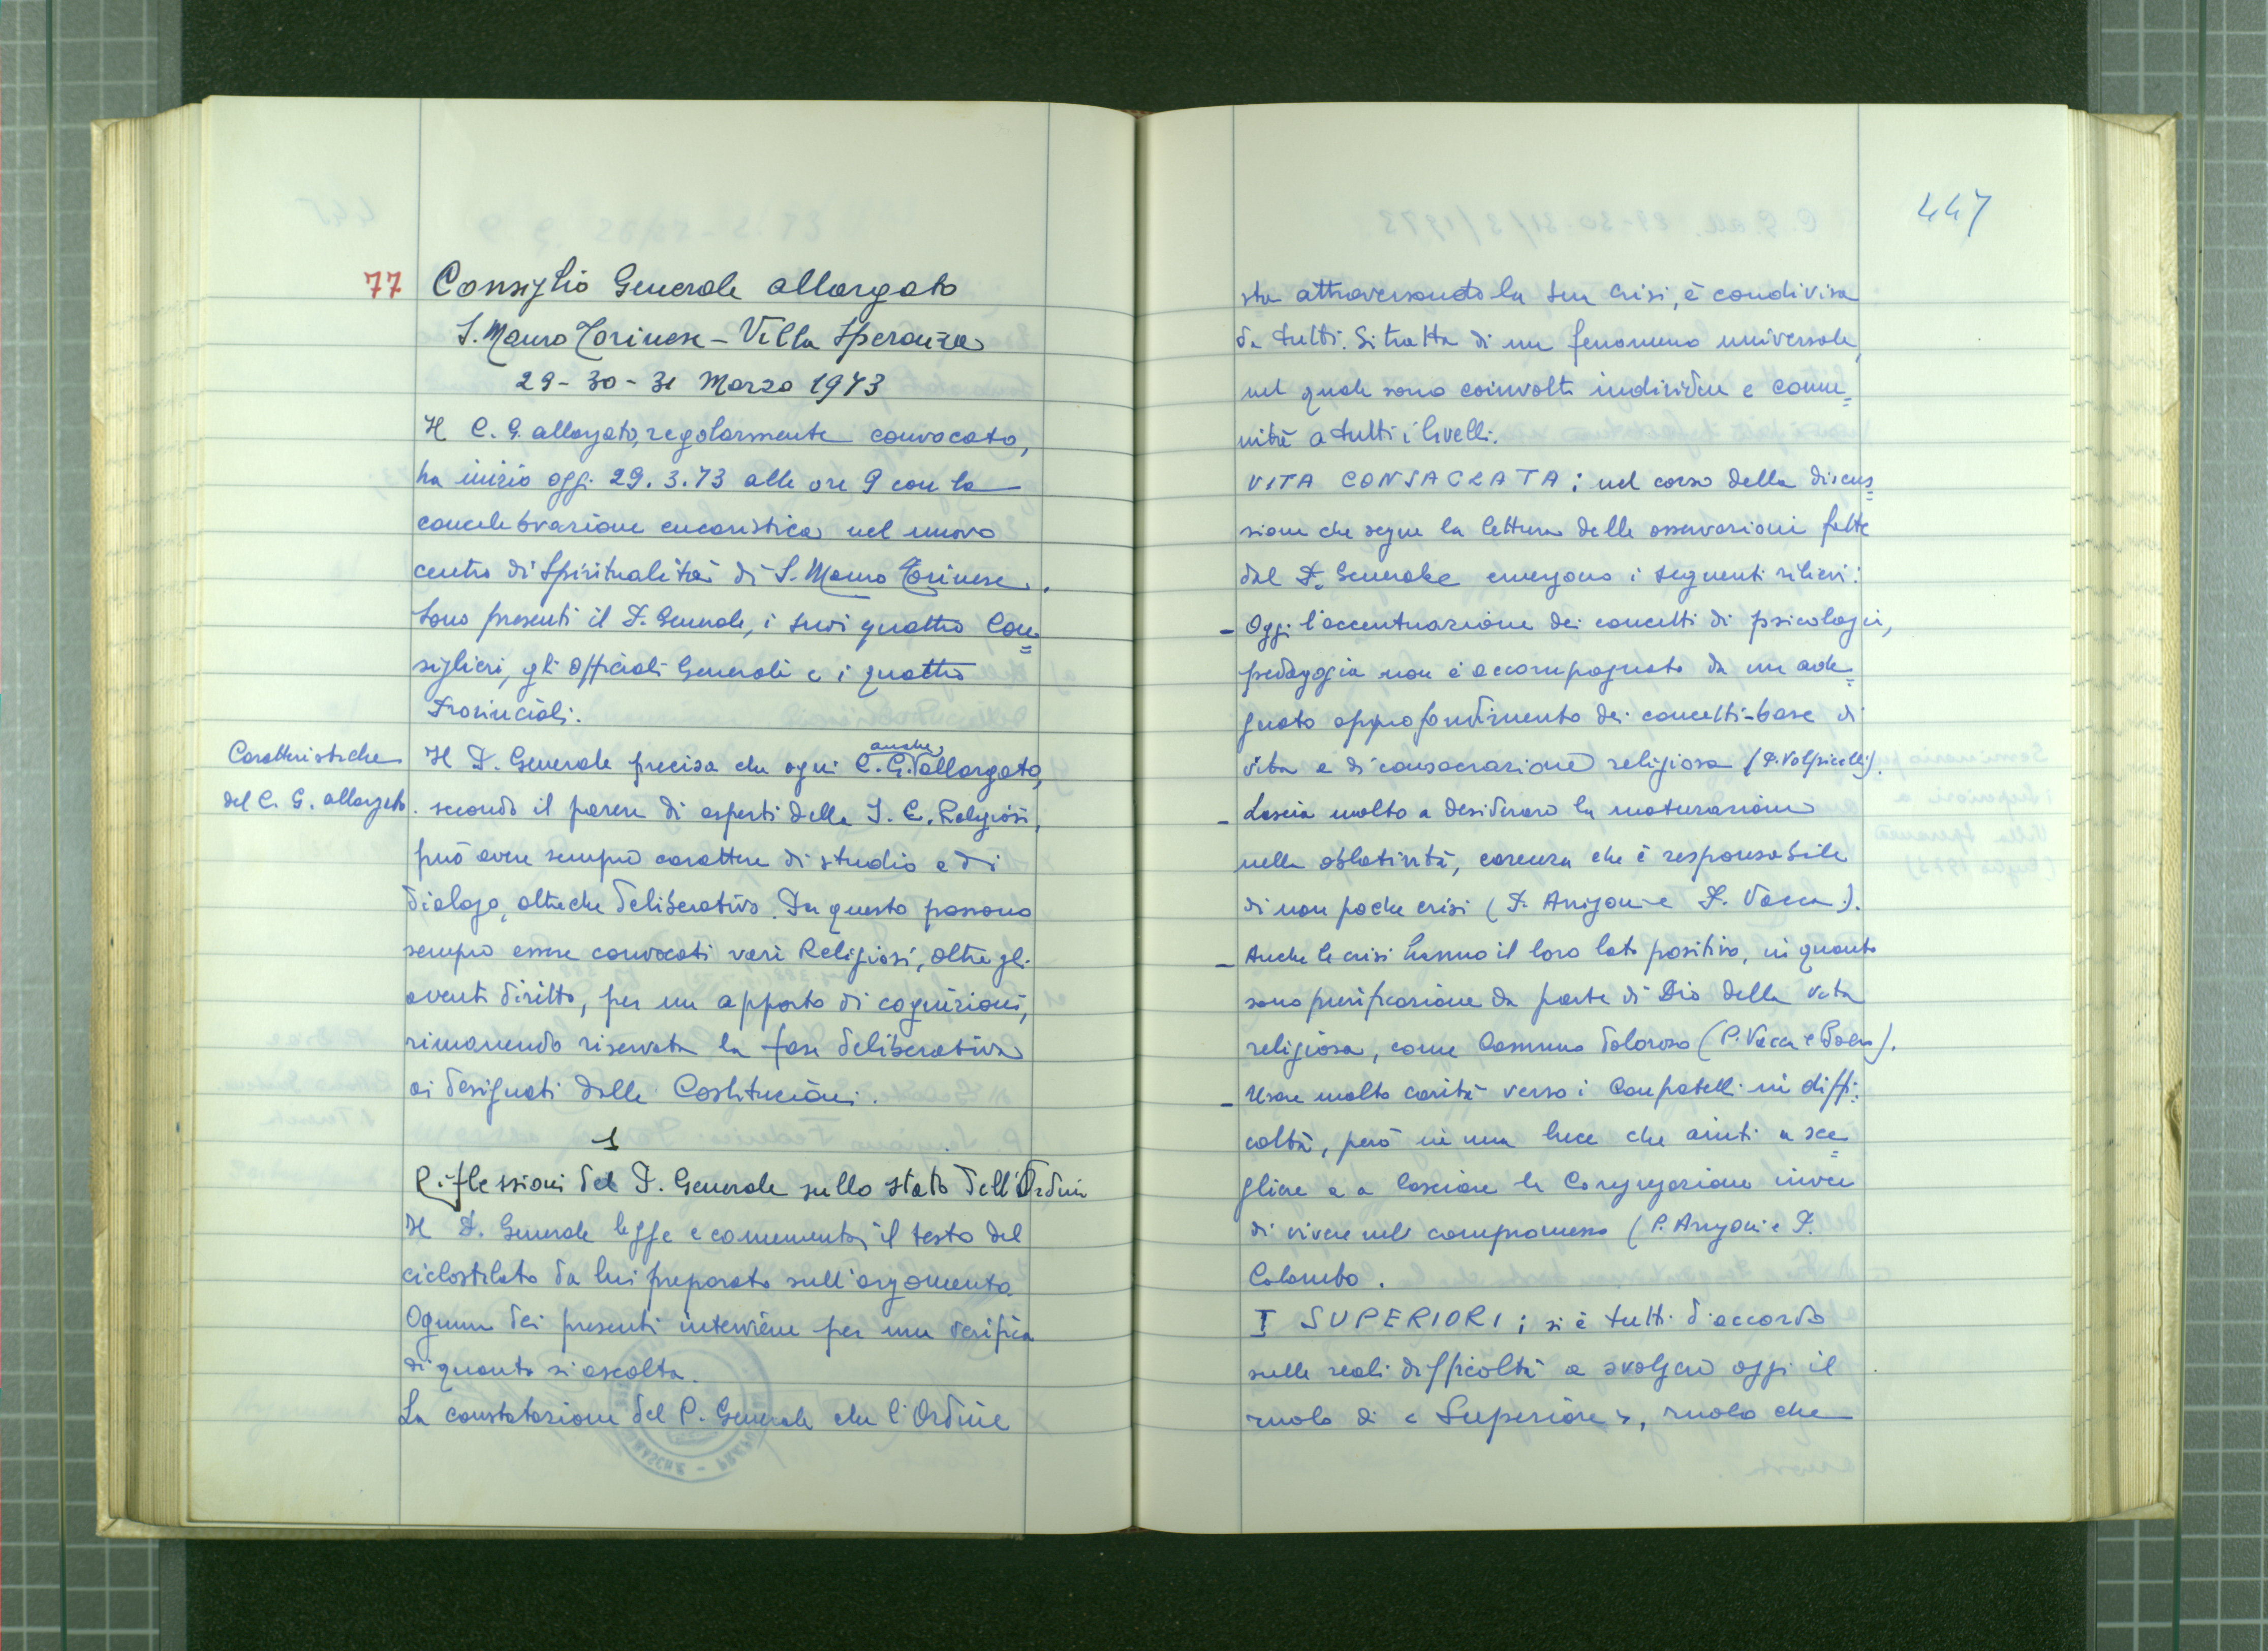 77 Consiglio Generale allargato
S. Mauro Torinese - Villa Speranza
29 - 30 - 31 Marzo 1973
Il C. G. allargato, regolarmente convocato,
ha inizio oggi 29. 3. 73 alle ore 9 con la
concelebrazione eucaristica nel nuovo
centro di Spiritualità di S. Mauro Torinese.
Sono presenti il P. Generale, i suoi quattro Con=
siglieri, gli Officiali Generali e i quattro
Provinciali.
Caratteristiche
del C. G. allargato.
Il P. Generale precisa che ogni C. G. anche allargato,
secondo il parere di esperti della S. C. Religiosi,
può avere sempre carattere di studio e di
dialogo, oltre che deliberativo. In questo possono
sempre essere convocati vari Religiosi, oltre gli
aventi diritto, per un apporto di cognizioni,
rimanendo riservata la fase deliberativa
ai designati dalle Costituzioni.
1
Riflessioni del P. Generale sullo stato dell'Ordine
Il P. Generale legge e commenta il testo del
ciclostilato da lui preparato sull'argomento.
Ognuno dei presenti interviene per una verifica
di quanto si ascolta.
La constatazione del P. Generale che l'Ordine
447
sta attraversando la sua crisi, è condivisa
da tutti. Si tratta di un fenomeno universale,
nel quale sono coinvolti individui e comu=
nità a tutti i livelli.
VITA CONSACRATA: nel corso della discus=
sione che segue la lettura delle osservazioni fatte
dal P. Generale emergono i seguenti rilievi:
- Oggi l'accentuazione dei concetti di psicologia,
pedagogia non è accompagnato da un ade=
guato approfondimento dei concetti-base di
vita e di consacrazione religiosa (P. Volpicelli).
- Lascia molto a desiderare la maturazione
nella oblatività, carenza che è responsabile
di non poche crisi (P. Arrigoni e P. Vacca).
- Anche le crisi hanno il loro lato positivo, in quanto
sono purificazione da parte di Dio della vita
religiosa, come cammino doloroso (P. Vacca e).
- Usare molta carità verso i Confratelli in diffi=
coltà, però in una luce che aiuti a sce=
gliere e a lasciare la Congregazione invece
di vivere nel compromesso (P. Arrigoni e P.
Colombo.
I SUPERIORI: si è tutti d'accordo
sulle reali difficoltà a svolgere oggi il
ruolo di « Superiore », ruolo che